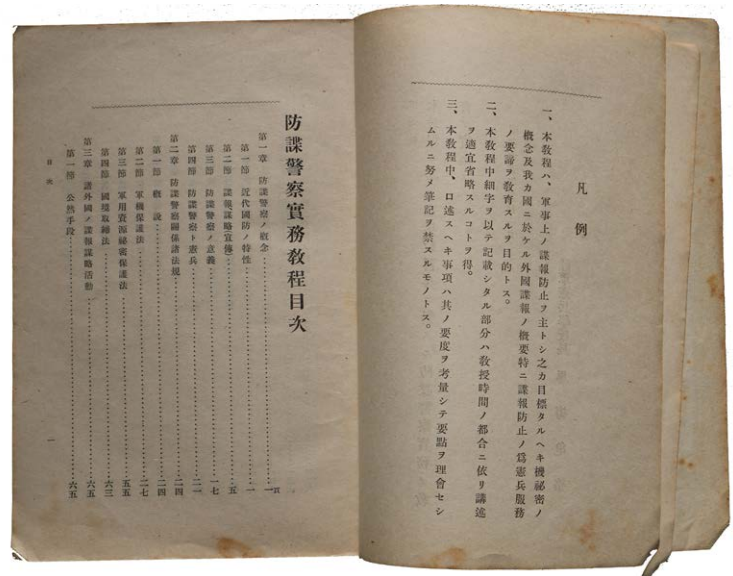 凡例
一、本敎程ハ、軍事上ノ諜報防止ヲ主トシ之カ目標タルヘキ機祕密ノ
槪念及我カ國ニ於ケル外國諜報ノ槪要特ニ諜報防止ノ爲憲兵服務
ノ要諦ヲ敎育スルヲ目的トス。
二、本敎程中細字ヲ以テ記載シタル部分ハ敎授時間ノ都合ニ依リ講述
ヲ適宜省略スルコトヲ得。
三、本敎程中、口述スヘキ事項ハ其ノ要度ヲ考量シテ要點ヲ理會セシ
ムルニ努メ筆記ヲ禁スルモノトス。
防諜警察實務敎程目次
第一章 防諜警察ノ槪念…一
第一節 近代國防ノ特性…一
第二節 諜報謀略宣傳…五
第三節 防諜警察ノ意義…一七
第四節 防諜警察ト憲兵…二一
第二章 防諜警察關係諸法規…二四
第一節 槪說…二四
第二節 軍機保護法…二七
第三節 軍用資源祕密保護法…五五
第四節 國境取締法…六三
第三章 諸外國ノ諜報謀略活動…六五
第一節 公然手段…六五
目次
一